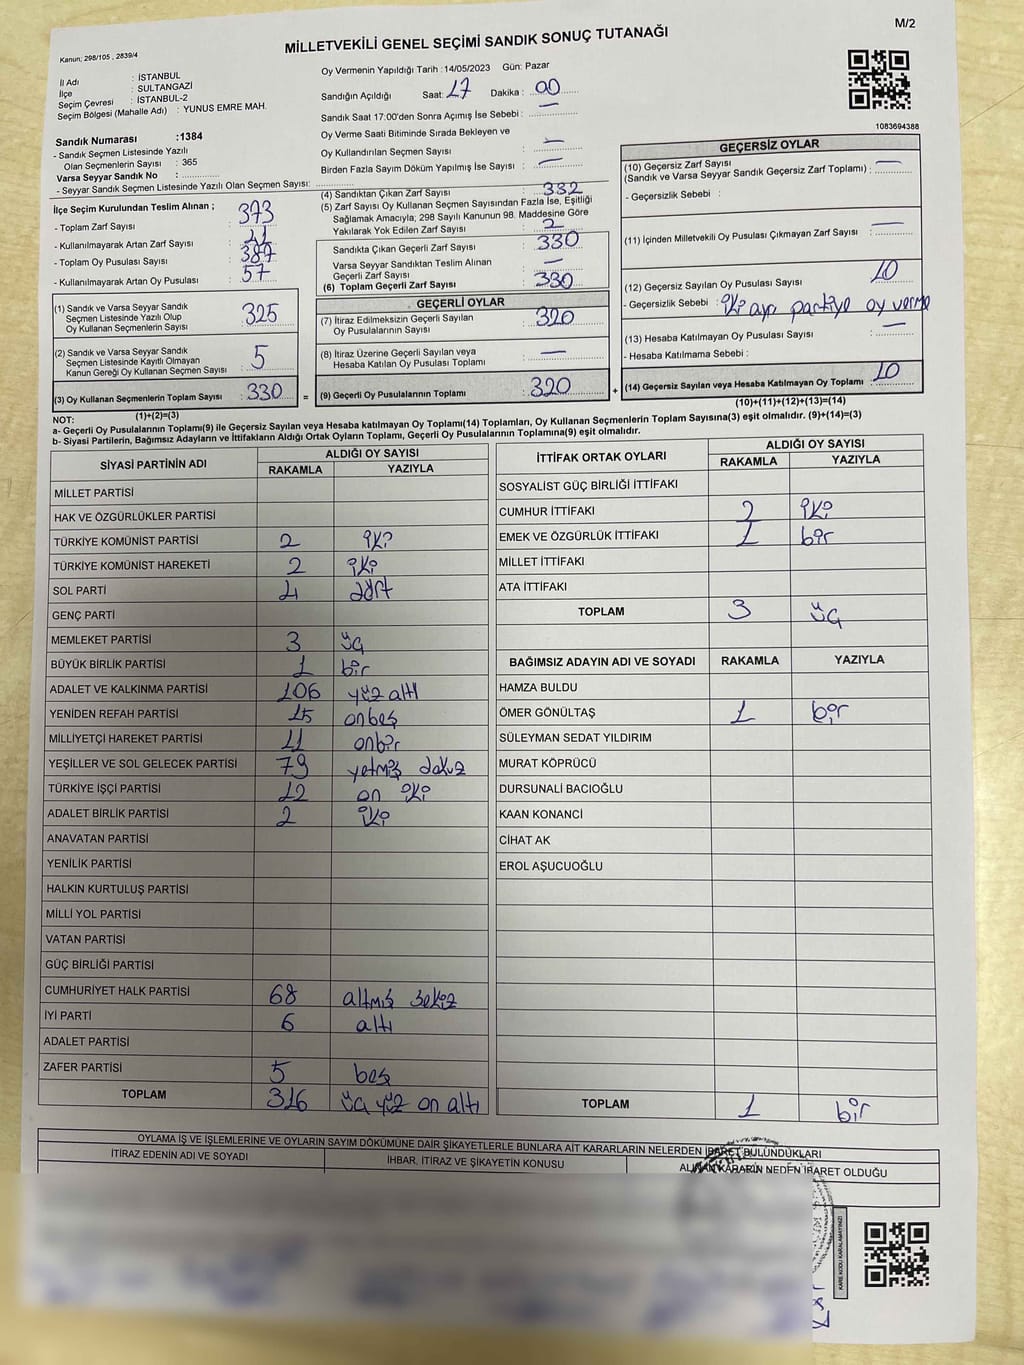 M/2
Kanun; 298/105 , 2839/4
MİLLETVEKİLİ GENEL SEÇİMİ SANDIK SONUÇ TUTANAĞI
İl Adı : İSTANBUL
İlçe : SULTANGAZİ
Seçim Çevresi : İSTANBUL-2
Seçim Bölgesi (Mahalle Adı) : YUNUS EMRE MAH.
Sandık Numarası :1384
- Sandık Seçmen Listesinde Yazılı
Olan Seçmenlerin Sayısı : 365
Varsa Seyyar Sandık No :
- Seyyar Sandık Seçmen Listesinde Yazılı Olan Seçmen Sayısı:
İlçe Seçim Kurulundan Teslim Alınan ;
- Toplam Zarf Sayısı : 373
- Kullanılmayarak Artan Zarf Sayısı : 41
- Toplam Oy Pusulası Sayısı : 387
- Kullanılmayarak Artan Oy Pusulası : 57
(1) Sandık ve Varsa Seyyar Sandık
Seçmen Listesinde Yazılı Olup
Oy Kullanan Seçmenlerin Sayısı : 325
(2) Sandık ve Varsa Seyyar Sandık
Seçmen Listesinde Kayıtlı Olmayan
Kanun Gereği Oy Kullanan Seçmen Sayısı : 5
(3) Oy Kullanan Seçmenlerin Toplam Sayısı : 330
(1)+(2)=(3)
Oy Vermenin Yapıldığı Tarih :14/05/2023 Gün: Pazar
Sandığın Açıldığı Saat: 17 Dakika : 00
Sandık Saat 17:00'den Sonra Açımış İse Sebebi : —
Oy Verme Saati Bitiminde Sırada Bekleyen ve
Oy Kullandırılan Seçmen Sayısı : —
Birden Fazla Sayım Döküm Yapılmış İse Sayısı : —
(4) Sandıktan Çıkan Zarf Sayısı : 332
(5) Zarf Sayısı Oy Kullanan Seçmen Sayısından Fazla İse, Eşitliği
Sağlamak Amacıyla; 298 Sayılı Kanunun 98. Maddesine Göre
Yakılarak Yok Edilen Zarf Sayısı : 2
Sandıkta Çıkan Geçerli Zarf Sayısı : 330
Varsa Seyyar Sandıktan Teslim Alınan
Geçerli Zarf Sayısı : —
(6) Toplam Geçerli Zarf Sayısı : 330
GEÇERLİ OYLAR
(7) İtiraz Edilmeksizin Geçerli Sayılan
Oy Pusulalarının Sayısı : 320
(8) İtiraz Üzerine Geçerli Sayılan veya
Hesaba Katılan Oy Pusulası Toplamı : —
= (9) Geçerli Oy Pusulalarının Toplamı : 320 +
1083694388
GEÇERSİZ OYLAR
(10) Geçersiz Zarf Sayısı
(Sandık ve Varsa Seyyar Sandık Geçersiz Zarf Toplamı) : —
- Geçersizlik Sebebi :
(11) İçinden Milletvekili Oy Pusulası Çıkmayan Zarf Sayısı : —
(12) Geçersiz Sayılan Oy Pusulası Sayısı : 10
- Geçersizlik Sebebi : iki ayrı partiye oy verme
(13) Hesaba Katılmayan Oy Pusulası Sayısı : —
- Hesaba Katılmama Sebebi :
(14) Geçersiz Sayılan veya Hesaba Katılmayan Oy Toplamı : 10
(10)+(11)+(12)+(13)=(14)
NOT:
a- Geçerli Oy Pusulalarının Toplamı(9) ile Geçersiz Sayılan veya Hesaba katılmayan Oy Toplamı(14) Toplamları, Oy Kullanan Seçmenlerin Toplam Sayısına(3) eşit olmalıdır. (9)+(14)=(3)
b- Siyasi Partilerin, Bağımsız Adayların ve İttifakların Aldığı Ortak Oyların Toplamı, Geçerli Oy Pusulalarının Toplamına(9) eşit olmalıdır.
SİYASİ PARTİNİN ADI ALDIĞI OY SAYISI
RAKAMLA YAZIYLA
MİLLET PARTİSİ
HAK VE ÖZGÜRLÜKLER PARTİSİ
TÜRKİYE KOMÜNİST PARTİSİ 2 iki
TÜRKİYE KOMÜNİST HAREKETİ 2 iki
SOL PARTİ 4 dört
GENÇ PARTİ
MEMLEKET PARTİSİ 3 üç
BÜYÜK BİRLİK PARTİSİ 1 bir
ADALET VE KALKINMA PARTİSİ 106 yüz altı
YENİDEN REFAH PARTİSİ 15 onbeş
MİLLİYETÇİ HAREKET PARTİSİ 11 onbir
YEŞİLLER VE SOL GELECEK PARTİSİ 79 yetmiş dokuz
TÜRKİYE İŞÇİ PARTİSİ 12 on iki
ADALET BİRLİK PARTİSİ 2 iki
ANAVATAN PARTİSİ
YENİLİK PARTİSİ
HALKIN KURTULUŞ PARTİSİ
MİLLİ YOL PARTİSİ
VATAN PARTİSİ
GÜÇ BİRLİĞİ PARTİSİ
CUMHURİYET HALK PARTİSİ 68 altmış sekiz
İYİ PARTİ 6 altı
ADALET PARTİSİ
ZAFER PARTİSİ 5 beş
TOPLAM 316 üç yüz on altı
İTTİFAK ORTAK OYLARI ALDIĞI OY SAYISI
RAKAMLA YAZIYLA
SOSYALİST GÜÇ BİRLİĞİ İTTİFAKI
CUMHUR İTTİFAKI 2 iki
EMEK VE ÖZGÜRLÜK İTTİFAKI 1 bir
MİLLET İTTİFAKI
ATA İTTİFAKI
TOPLAM 3 üç
BAĞIMSIZ ADAYIN ADI VE SOYADI RAKAMLA YAZIYLA
HAMZA BULDU
ÖMER GÖNÜLTAŞ 1 bir
SÜLEYMAN SEDAT YILDIRIM
MURAT KÖPRÜCÜ
DURSUNALİ BACIOĞLU
KAAN KONANCİ
CİHAT AK
EROL AŞUCUOĞLU
TOPLAM 1 bir
OYLAMA İŞ VE İŞLEMLERİNE VE OYLARIN SAYIM DÖKÜMÜNE DAİR ŞİKAYETLERLE BUNLARA AİT KARARLARIN NELERDEN İBARET BULUNDUKLARI
İTİRAZ EDENİN ADI VE SOYADI İHBAR, İTİRAZ VE ŞİKAYETİN KONUSU ALINAN KARARIN NEDEN İBARET OLDUĞU
KARE KODU KARALAMAYINIZ!